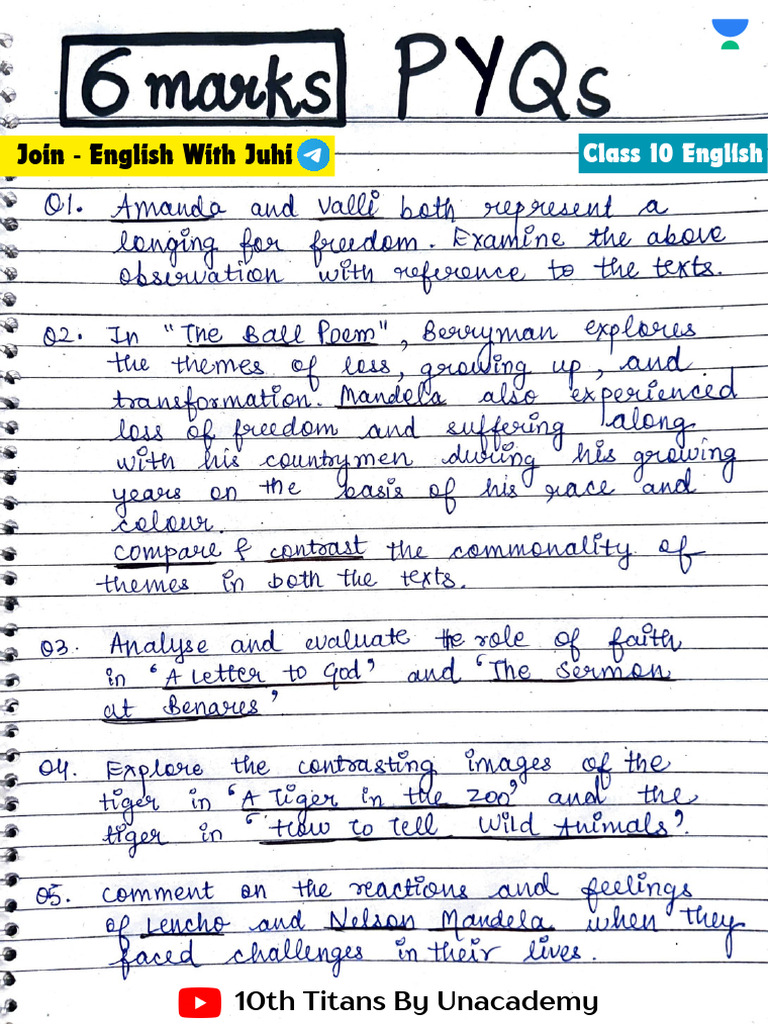 6 marks PYQs
Join - English With Juhi
Class 10 English
Q1. Amanda and Valli both represent a
longing for freedom. Examine the above
observation with reference to the texts.
Q2. In "The Ball Poem", Berryman explores
the themes of loss, growing up, and
transformation. Mandela also experienced
loss of freedom and suffering along
with his countrymen during his growing
years on the basis of his race and
colour.
compare & contrast the commonality of
themes in both the texts.
Q3. Analyse and evaluate the role of faith
in 'A Letter to God' and 'The Sermon
at Benares'
Q4. Explore the contrasting images of the
tiger in 'A Tiger in the Zoo' and the
tiger in 'How to Tell Wild Animals'.
Q5. comment on the reactions and feelings
of Lencho and Nelson Mandela when they
faced challenges in their lives.
10th Titans By Unacademy